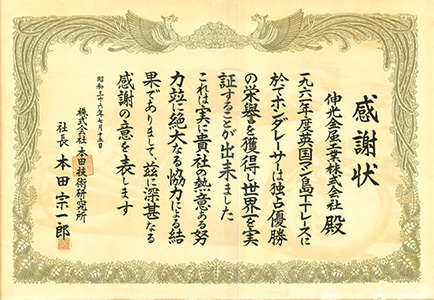 感謝状
伸光金属工業株式会社 殿
一九六一年度英国マン島TTレースに
於てホンダレーサーは独占優勝
の栄誉を獲得し世界一を実
証することが出来ました
これは実に貴社の熱意ある努
力竝に絶大なる協力による結
果でありまして、茲に深甚なる
感謝の意を表します
昭和三十六年七月十五日
株式会社本田技術研究所
社長 本田宗一郎